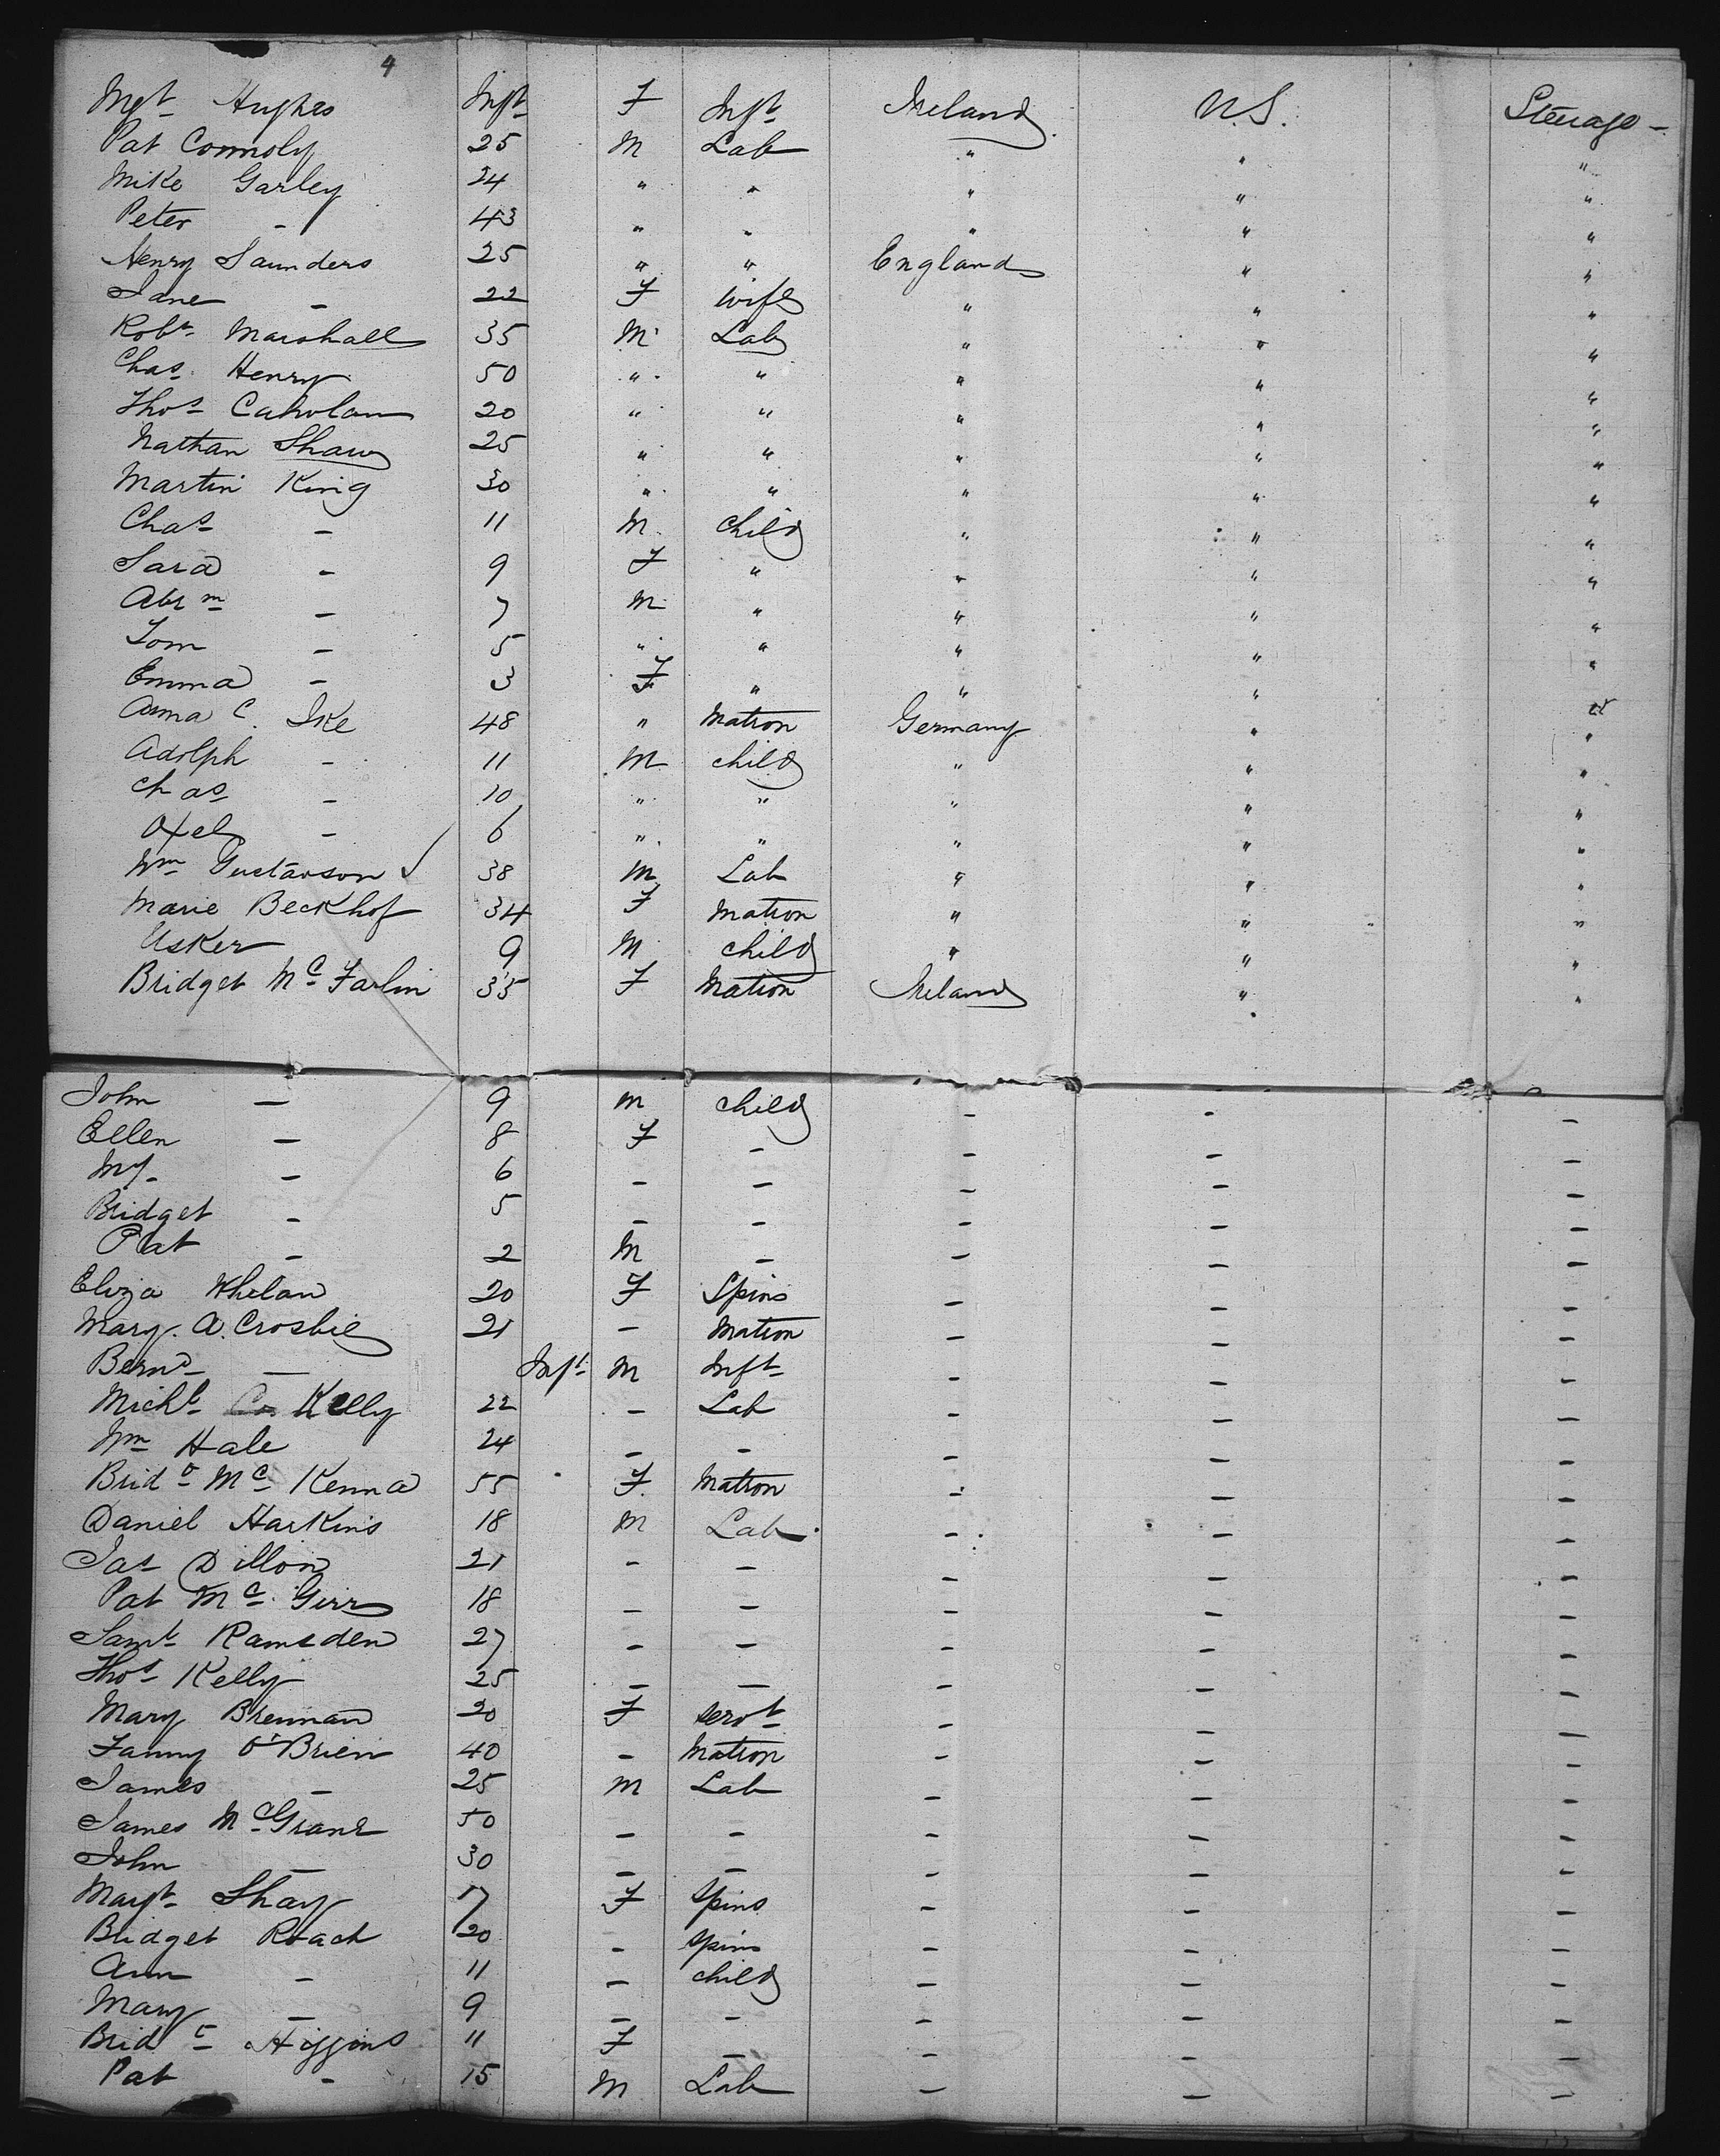 4
Mgt Hughes Inft F Inft Ireland U.S. Steerage -
Pat Connoly 25 M Lab " " "
Mike Garley 24 " " " " "
Peter - 43 " " " " "
Henry Saunders 25 " " England " "
Jane - 22 F Wife " " "
Robt Marshall 35 M Lab " " "
Chas Henry 50 " " " " "
Thos Caholan 20 " " " " "
Nathan Shaw 25 " " " " "
Martin King 30 " " " " "
Chas - 11 M child " " "
Sara - 9 F " " " "
Abrm - 7 M " " " "
Tom - 5 " " " " "
Emma - 3 F " " " "
Anna C. Ike 48 " Matron Germany " "
Adolph - 11 M child " " "
Chas - 10 " " " " "
Axel - 6 " " " " "
Wm Gustavson 38 M Lab " " "
Marie Beckhof 34 F Matron " " "
Usker 9 M child " " "
Bridget Mc Farlin 35 F Matron Ireland " "
John - 9 M child - - -
Ellen - 8 F - - - -
My - 6 - - - - -
Bridget - 5 - - - - -
Pat - 2 M - - - -
Eliza Whelan 20 F Spins - - -
Mary. A. Crosbie 21 - Matron - - -
Bernd - Inft M Inft - - -
Michl Kelly 22 - Lab - - -
Wm Hale 24 - - - - -
Bridt Mc Kenna 55 F Matron - - -
Daniel Harkins 18 M Lab - - -
Jas Dillon 21 - - - - -
Pat Mc Girr 18 - - - - -
Saml Ramsden 27 - - - - -
Thos Kelly 25 - - - - -
Mary Brennan 20 F servt - - -
Fanny O'Brien 40 - Matron - - -
James - 25 M Lab - - -
James McGrane 50 - - - - -
John - 30 - - - - -
Magt Shay 17 F Spins - - -
Bridget Roach 20 - Spins - - -
Ann - 11 - child - - -
Mary - 9 - - - - -
Bridt Higgins 11 F - - - -
Pat - 15 M Lab - - -